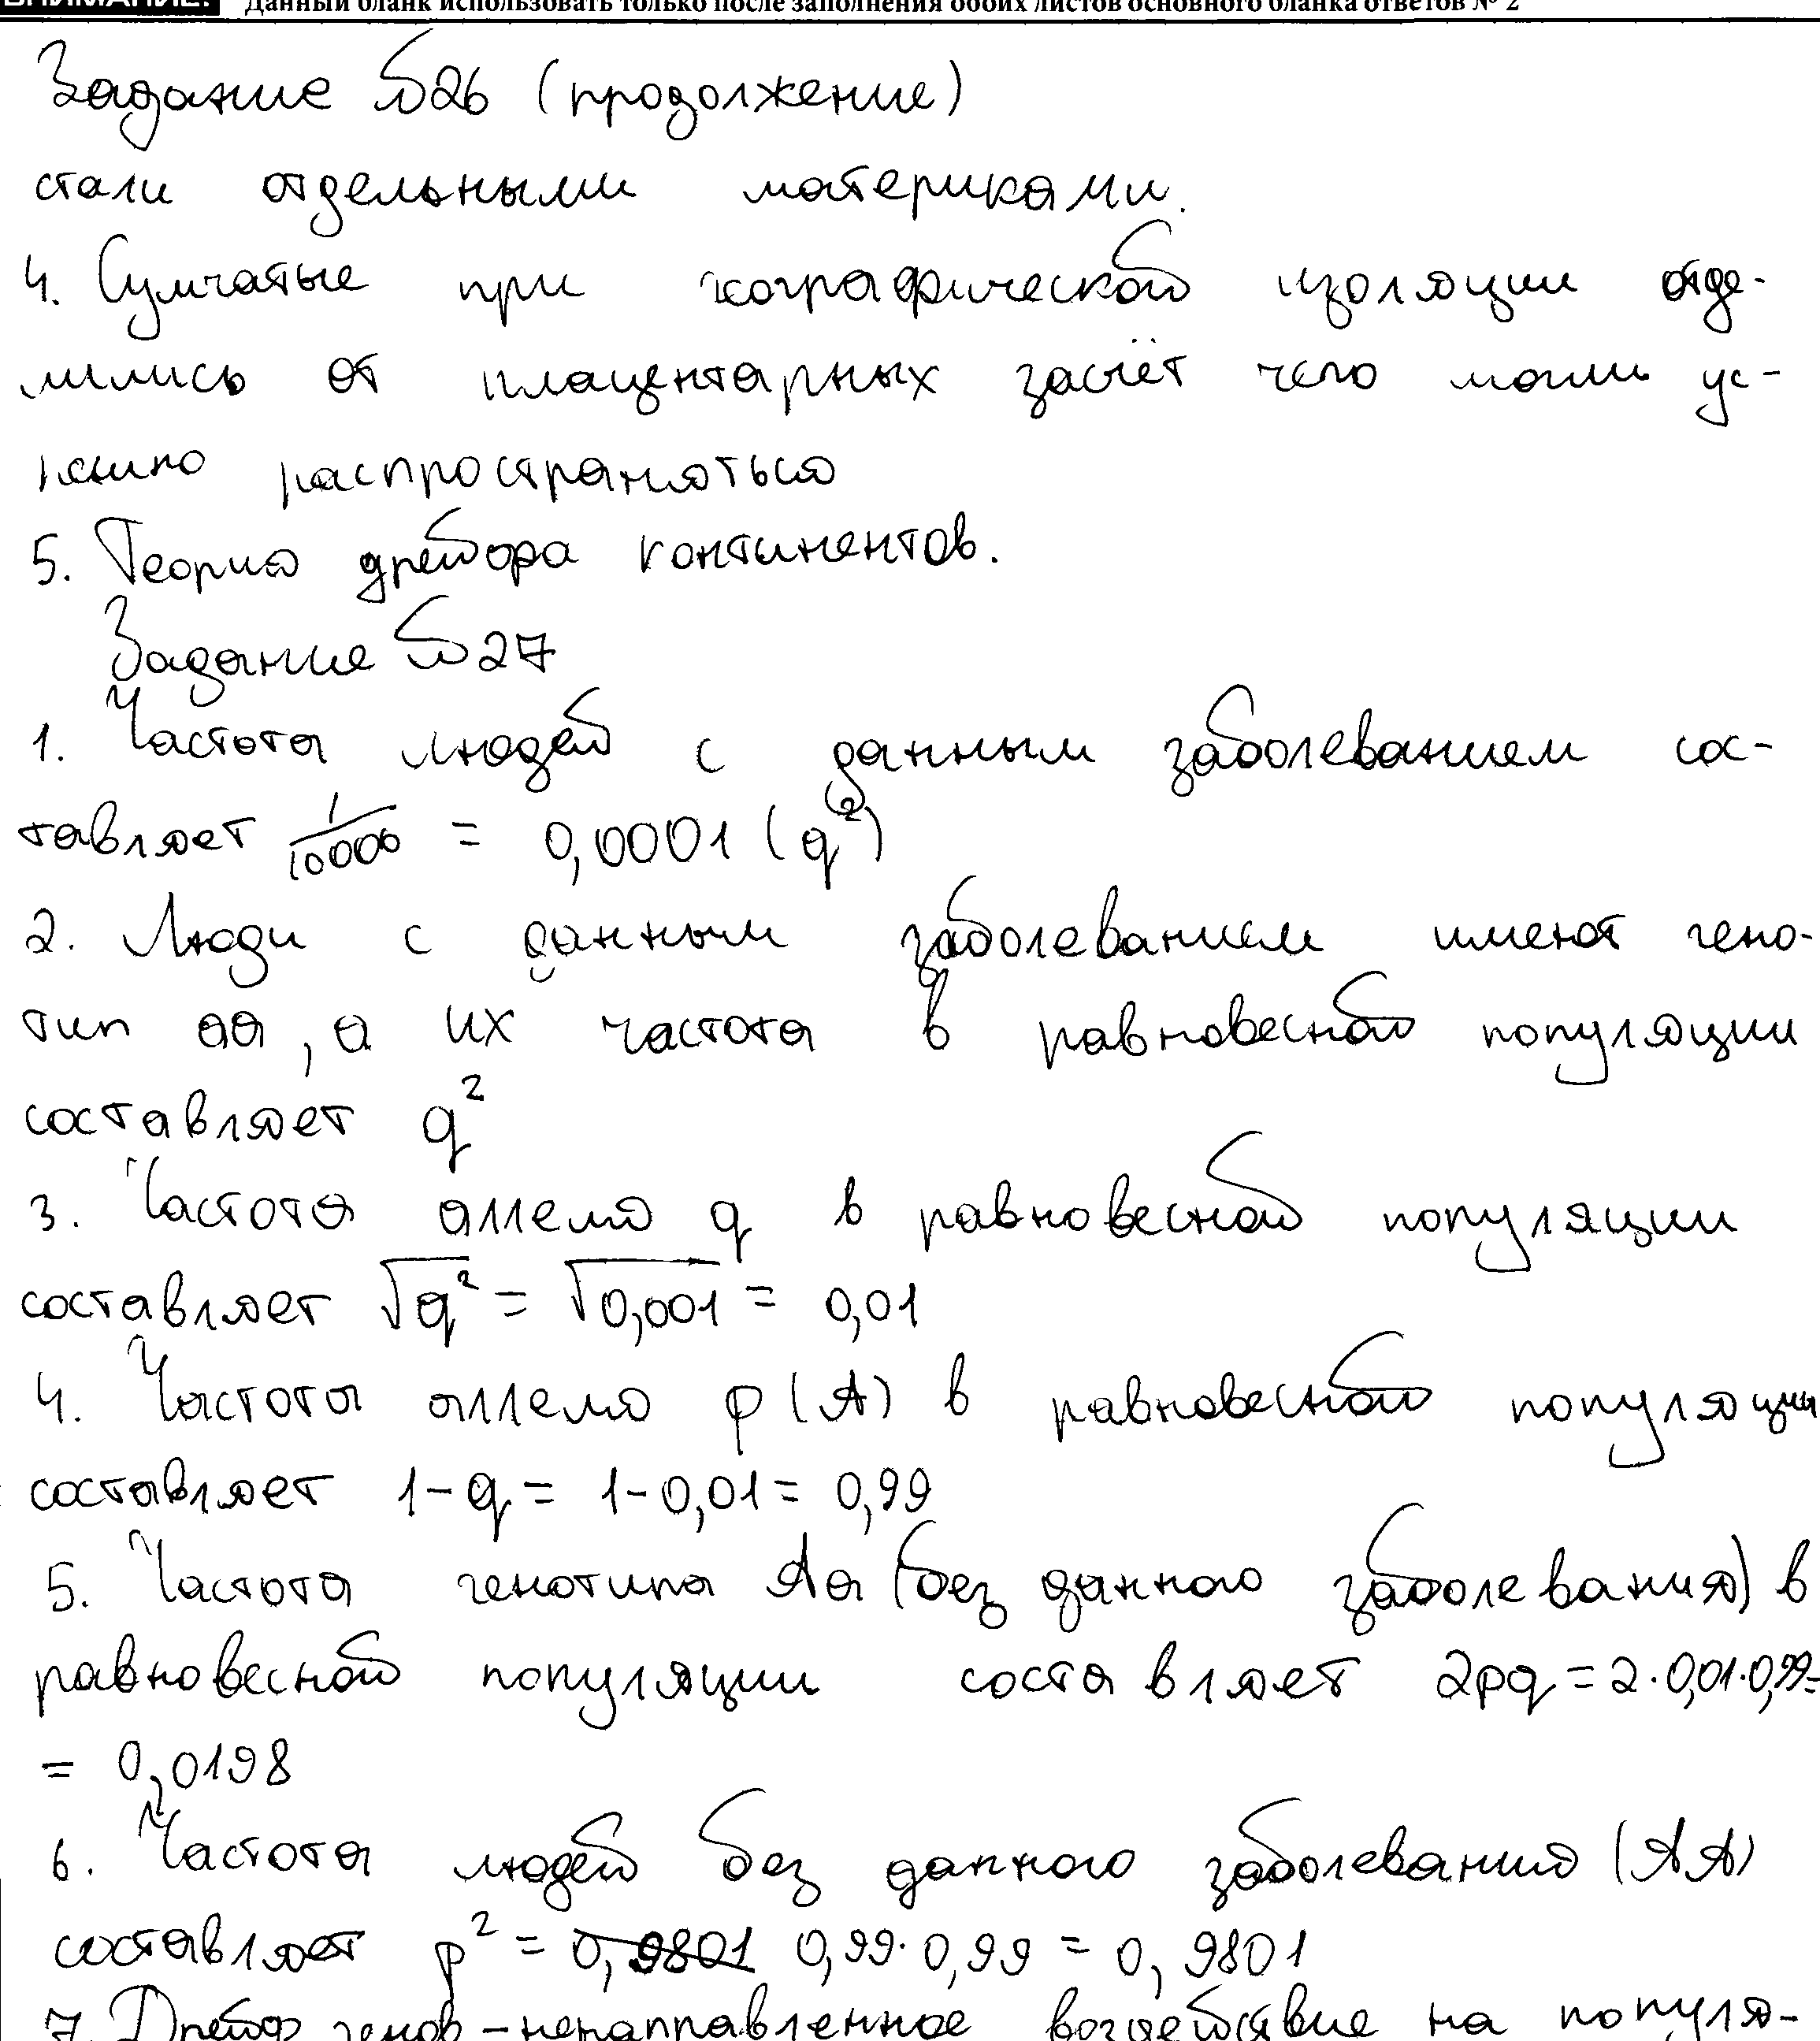 ВНИМАНИЕ! Данный бланк использовать только после заполнения обоих листов основного бланка ответов № 2
Задание №26 (продолжение)
стали отдельными материками.
4. Сумчатые при географической изоляции отде-
лились от плацентарных засчёт чего могли ус-
пешно распространяться
5. Теория дрейфа континентов.
Задание №27
1. Частота людей с данным заболеванием сос-
тавляет 1/10000 = 0,0001 (q²)
2. Люди с данным заболеванием имеют гено-
тип аа, а их частота в равновесной популяции
составляет q²
3. Частота аллеля q в равновесной популяции
составляет √q² = √0,001 = 0,01
4. Частота аллеля p (A) в равновесной популяции
составляет 1-q = 1-0,01 = 0,99
5. Частота генотипа Аа (без данного заболевания) в
равновесной популяции составляет 2pq = 2·0,01·0,99=
= 0,0198
6. Частота людей без данного заболевания (АА)
составляет p² = 0,9801 0,99·0,99 = 0,9801
7. Дрейф генов - ненаправленное воздействие на популя-